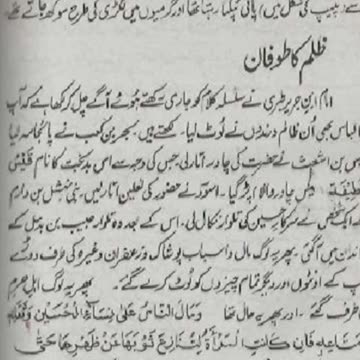 سے (پیپ کی شکل میں) پانی ٹپکتا رہتا تھا اور گرمیوں میں لکڑی کی طرح سوکھ جاتے تھے
ظلم کا طوفان
امام ابن جریر طبری نے سلسلہ کلام کو جاری رکھتے ہوئے آگے چل کر لکھا ہے کہ آپ
لباس بھی اُن ظالم درندوں نے لوٹ لیا۔ لکھتے ہیں بحر بن کعب نے پائجامہ لیا
بن اشعث نے حضرت کی چادر اتار لی جس کی وجہ سے اس بدبخت کا نام قَیْسُ
چادر والا پڑ گیا۔ اسود نے حضور کی نعلین اتار لیں، بنی نہشل بن دارم
کے ایک شخص نے سرکار حسین کی تلوار نکال لی۔ اس کے بعد وہ تلوار حبیب بن بدیل کے
میں آگئی۔ پھر یہ لوگ مال و اسباب پوشاک و زعفران وغیرہ کی طرف دوڑے
آپ کے اونٹوں اور دیگر تمام چیزوں کو لوٹ کر لے گئے۔ پھر یہ لوگ اہل حرم
طرف گئے۔ اور پھر یہ حال تھا وَمَالَ النَّاسُ عَلٰى نِسَاءِ الْحُسَيْنِ وَثَقَلِهٖ
فَاِنْ كَانَتِ الْمَرْأَةُ لَتُنَازَعُ ثَوْبَهَا عَنْ ظَهْرِهَا حَتّٰى